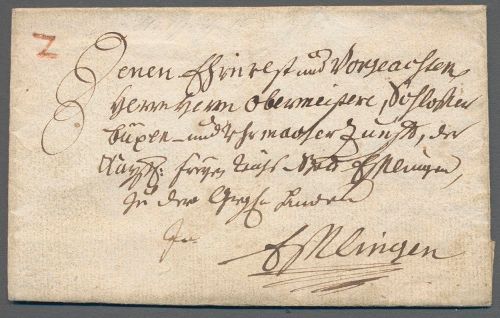 Z
Denen Ehrvest und Vorgeachten
Herrn Herrn Obermeistere, Schlosser
büxen- und Uhrmacher Zunfft, der
Kayßl: freyen Reichs Stadt Esslingen,
Zu der
In
Esslingen